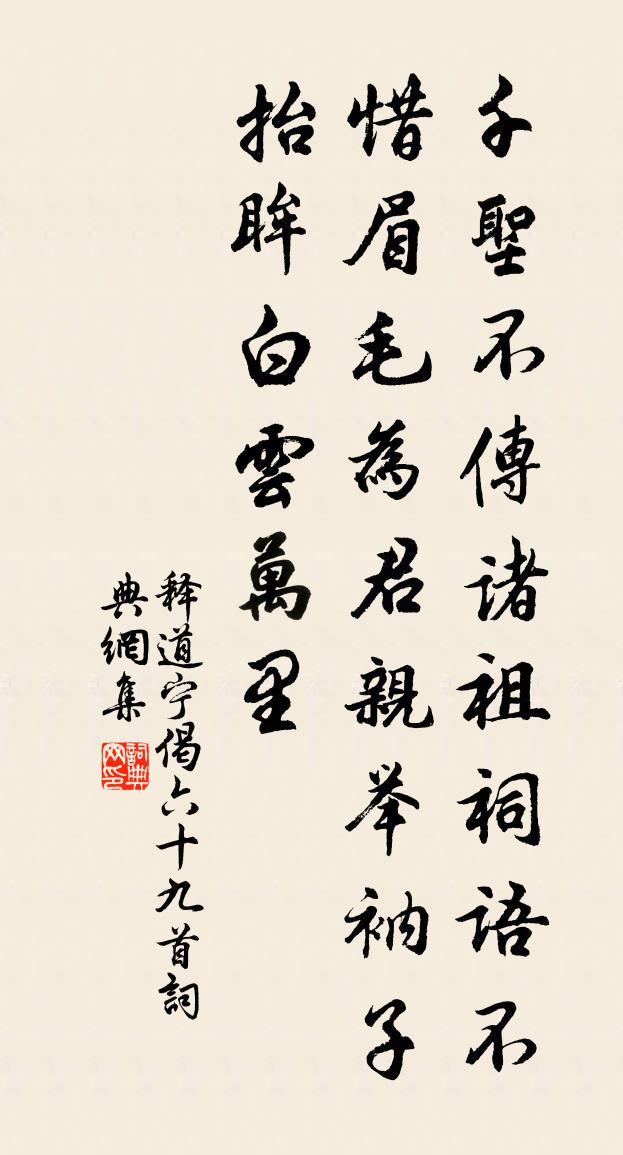 千聖不傳諸祖祠語不
惜眉毛為君親举衲子
抬眸白雲萬里
释道宁偈六十九首詞
典網集
詞典网印